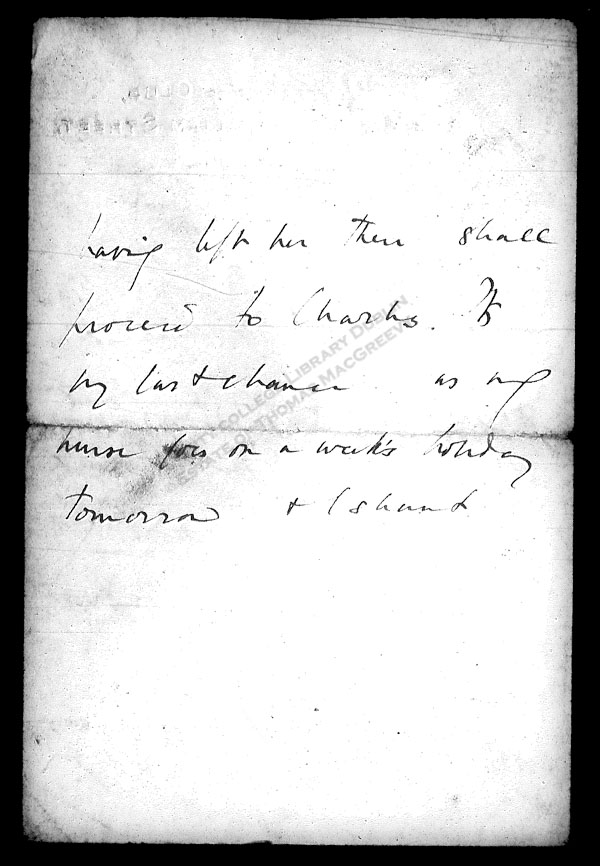 CLUB,
STREET,
having left her there shall
proceed to Charles. Its
my last chance as my
nurse goes on a week's holiday
tomorrow & I shant
COLLEGE LIBRARY DUBLIN
ESTATE OF THOMAS MACGREEVY